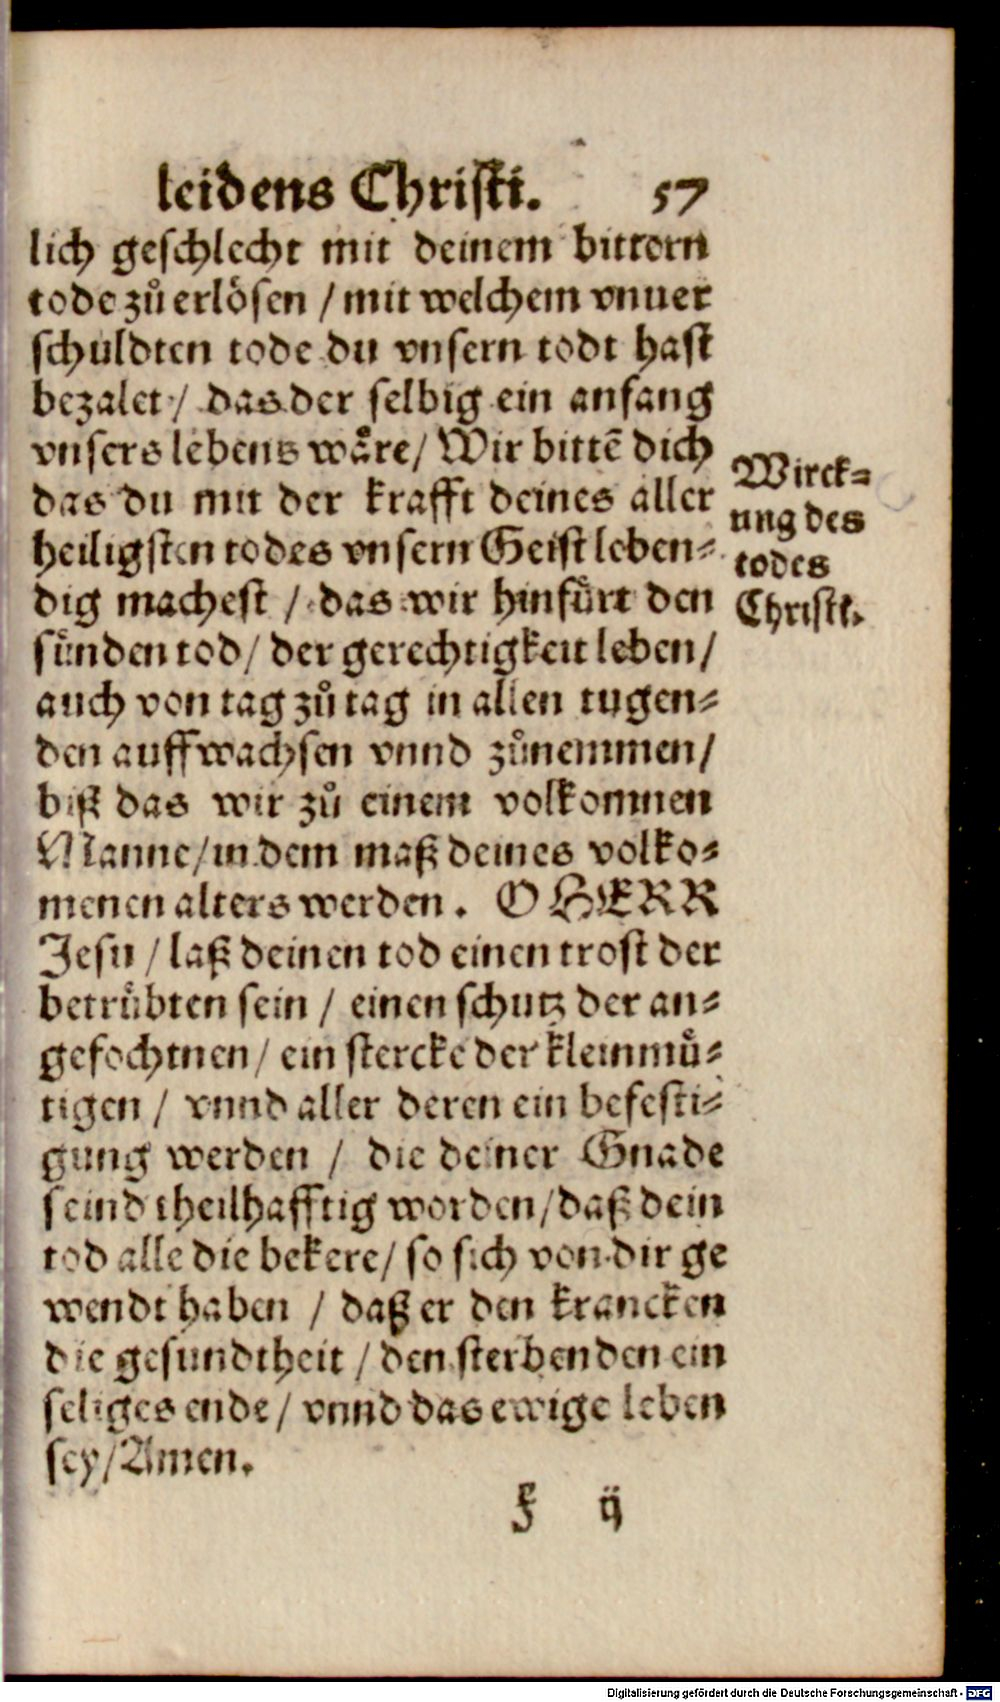 leidens Christi. 57
lich geschlecht mit deinem bittern
tode zů erlösen / mit welchem vnuer
schuldten tode du vnsern todt hast
bezalet / das der selbig ein anfang
vnsers lebens wåre / Wir bittē dich
das du mit der krafft deines aller
heiligsten todes vnsern Geist leben⸗
dig machest / das wir hinfürt den
sünden tod / der gerechtigkeit leben /
auch von tag zů tag in allen tugen⸗
den auffwachsen vnnd zůnemmen /
biß das wir zů einem volkomnen
Manne / in dem maß deines volko⸗
menen alters werden. O HERR
Jesu / laß deinen tod einen trost der
betrübten sein / einen schutz der an⸗
gefochtnen / ein stercke der kleinmů⸗
tigen / vnnd aller deren ein befesti⸗
gung werden / die deiner Gnade
seind theilhafftig worden / daß dein
tod alle die bekere / so sich von dir ge
wendt haben / daß er den krancken
die gesundtheit / den sterbenden ein
seliges ende / vnnd das ewige leben
sey / Amen.
Wirck⸗
ung des
todes
Christi.
ij
Digitalisierung gefördert durch die Deutsche Forschungsgemeinschaft - DFG